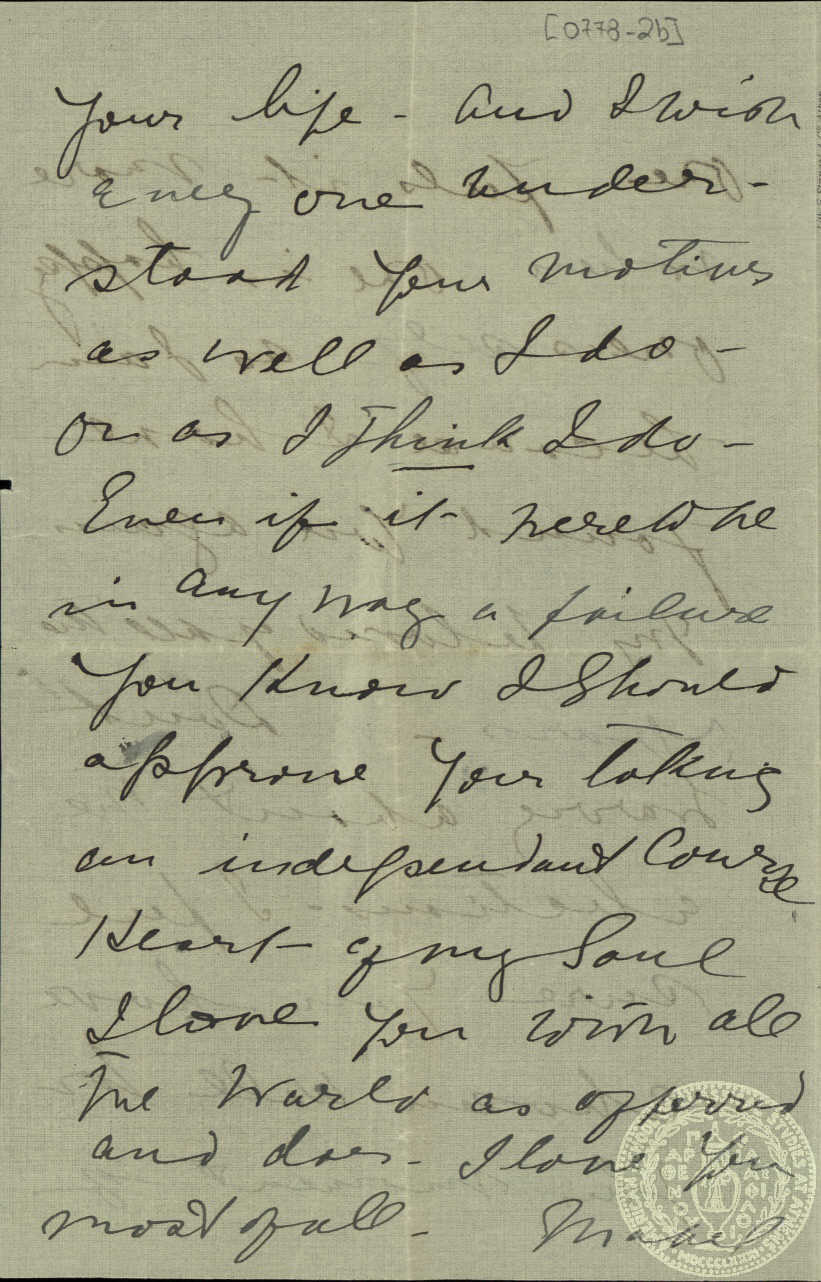 [0778-2b]
Your life - and I wish
every one under-
stood your motives
as well as I do -
or as I think I do -
Even if it were to be
in any way a failure
You know I should
approve your taking
an independant course
Heart of my Soul
I love you with all
the world as offered
and does - I love you
most of all -
Mabel